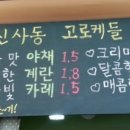 신사동 고로케들
맛 야채 1.5 ♡크리미
한 계란 1.8 ♡달콤한
빛 카레 1.5 ♡매콤